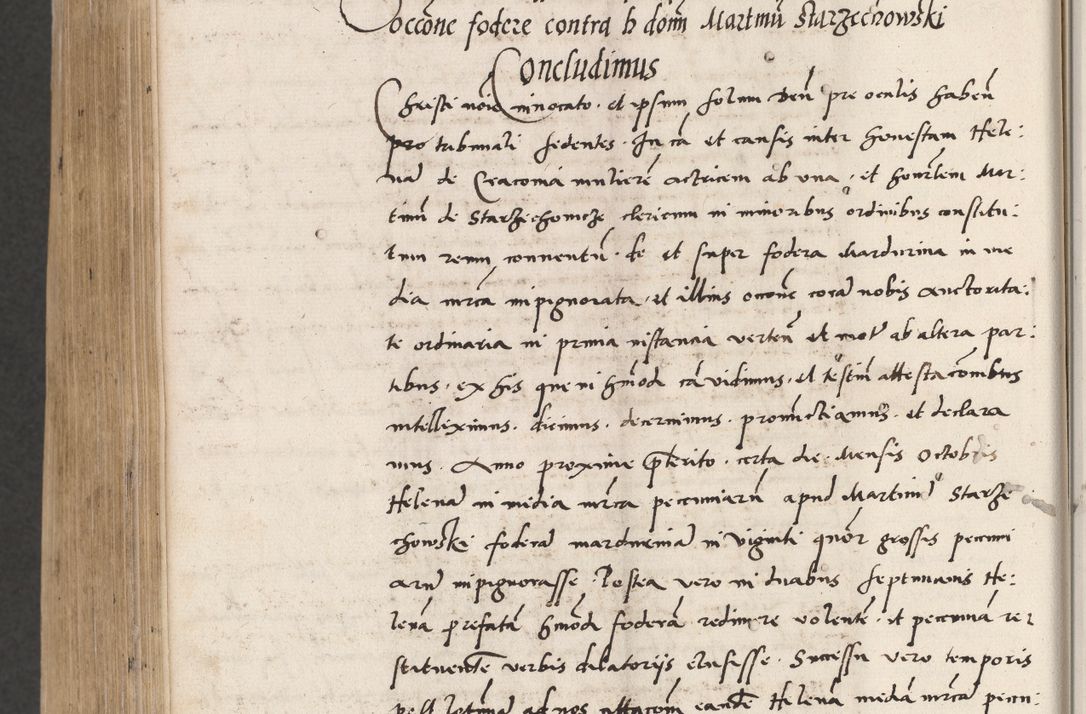 occone̅ fodere contra h domı̅ Martinu̅ Starzechowski
Concludimus
Christi noı̅e innocato · et ipsum solum Deu̅ pre oculis haben̅
pro tribunali sedentes · In ca̅ et causis inter honestam Hele:
nam de Cracouia mulierem actricem ab una · et honrlem Mar:
tinu̅ de Starzechowicze clericum in minoribus ordinibus constitu:
tum reum conuentu̅ · de et super fodera Mardurina in me
dia mrca inpignorata · et illius occone̅ cora̅ nobis auctorita:
te ordinaria in prima instancia verten̅ et mot̅ ab altera par:
tibus · ex his que in hmo̅di ca̅ vidimus · et testiu̅ attestaco̅nibus
intelleximus · dicimus · decernimus · pronu̅ctiamus · et declara
mus · Anno proxime pterito · certa die · Mensis Octobris
Helena̅ in media mrca pecuniaru̅ apud Martinu̅ Starze
chowski fodera̅ mardurina̅ in viginti quor̅ grossis pecuni
aru̅ inpignorasse · Postea vero in duabus septimanis He:
lena̅ prefata̅ hmo̅di fodera̅ redimere volente̅ · et pecunia̅ re
stituente̅ verbis dilatorijs elusisse · Successu vero temporis
ad nos eande̅ Helena̅ media̅ mrca̅ pecu: